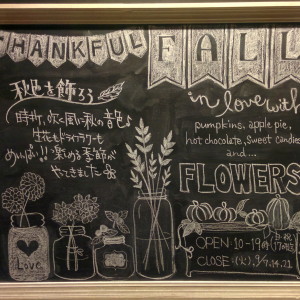 THANKFUL FALL
秋色を飾ろう
時折、吹く風に秋の音色♪
生花もドライフラワーも
めいっぱい!!楽しめる季節が
やってきました
in love with
pumpkins, apple pie,
hot chocolate, Sweet candies
and...
FLOWERS
Love
OPEN: 10-19時
CLOSE (火),